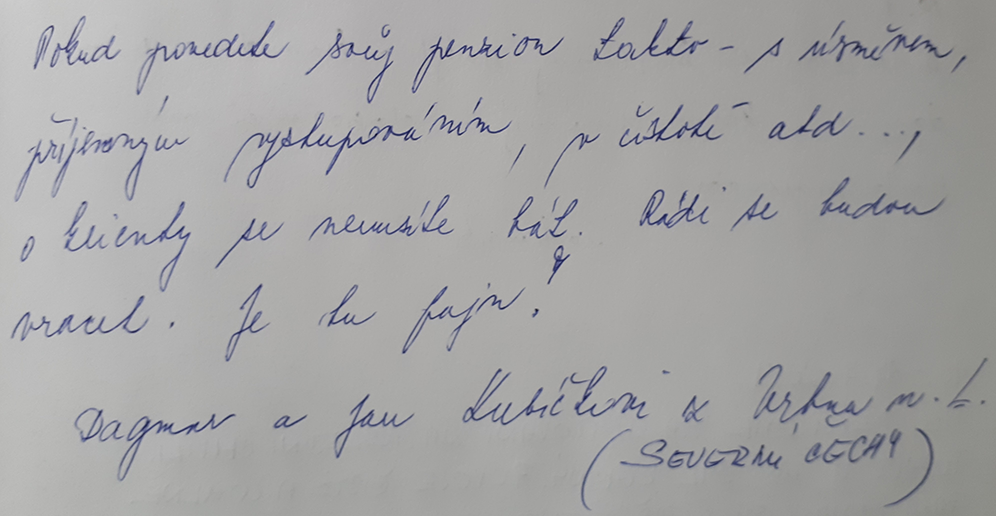 Pokud povedete svůj penzion takto – s úsměvem,
příjemným vystupováním, v čistotě atd...,
o klienty se nemusíte bát. Rádi se budou
vracet. Je tu fajn!
Dagmar a Jan Kubíčkovi z Vrbna n. L.
(SEVERNÍ ČECHY)